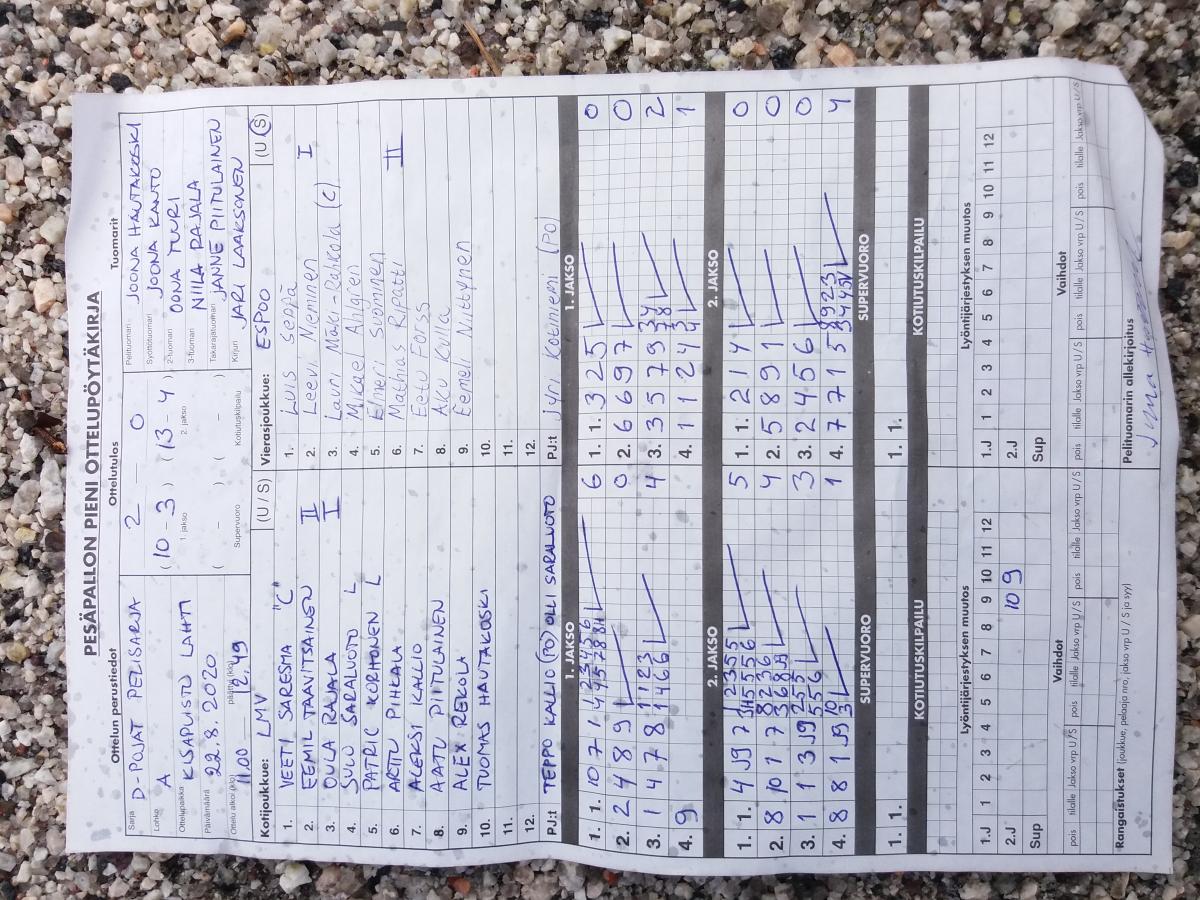 PESÄPALLON PIENI OTTELUPÖYTÄKIRJA
Ottelun perustiedot
Sarja D-POJAT PELISARJA
Lohko A
Ottelupaikka KISAPUISTO LAHTI
Päivämäärä 22.8.2020
Ottelu alkoi (klo) 11.00 päättyi (klo) 12.49
Ottelutulos
2 — 0
(10 - 3) (13 - 4)
1. jakso 2. jakso
( - ) ( - )
Supervuoro Kotiutuskilpailu
Tuomarit
Pelituomari JOONA HAUTAKOSKI
Syöttötuomari JOONA KANTO
2-tuomari OONA TUURI
3-tuomari NIILA RAJALA
Takarajatuomari JANNE PIITULAINEN
Kirjuri JARI LAAKSONEN
Kotijoukkue: LMV (U / S)
1. VEETI SARESMA "C"
2. EEMIL TAAVITSAINEN II
3. OULA RAJALA I
4. SULO SARALUOTO L
5. PATRIC KORHONEN L
6. ARTTU PIHKALA
7. ALEKSI KALLIO
8. AATU PIITULAINEN
9. ALEX REKOLA
10. TUOMAS HAUTAKOSKI
11.
12.
PJ:t TEPPO KALLIO (PO) OLLI SARALUOTO
Vierasjoukkue: ESPOO (U / S)
1. Luis Seppä
2. Leevi Nieminen I
3. Lauri Mäki-Rahkola (C)
4. Mikael Ahlgren
5. Elmeri Suominen
6. Mathias Ripatti II
7. Eetu Forss
8. Aku Kulla
9. Eemeli Niittynen
10.
11.
12.
PJ:t Jyri Kotiniemi (PO)
1. JAKSO 1. JAKSO
1. 1. 10 7 1 6 1. 1. 3 2 5 0
2. 2 4 8 9 0 2. 6 6 9 7 0
3. 1 4 7 8 4 3. 3 5 7 9 2
4. 9 4. 1 1 2 4 1
2. JAKSO 2. JAKSO
1. 1. 4 J9 7 5 1. 1. 2 1 4 0
2. 8 10 1 7 4 2. 5 8 9 1 0
3. 1 1 3 J9 3 3. 2 4 5 6 0
4. 8 8 1 J9 1 4. 7 7 1 5 4
SUPERVUORO SUPERVUORO
1. 1. 1. 1.
KOTIUTUSKILPAILU KOTIUTUSKILPAILU
Lyöntijärjestyksen muutos Lyöntijärjestyksen muutos
1.J 1 2 3 4 5 6 7 8 9 10 11 12 1.J 1 2 3 4 5 6 7 8 9 10 11 12
2.J 10 9 2.J
Sup Sup
Vaihdot Vaihdot
pois tilalle Jakso vrp U / S pois tilalle Jakso vrp U / S pois tilalle Jakso vrp U / S pois tilalle Jakso vrp U / S
Rangaistukset (joukkue, pelaaja nro, jakso vrp U / S ja syy)
Pelituomarin allekirjoitus